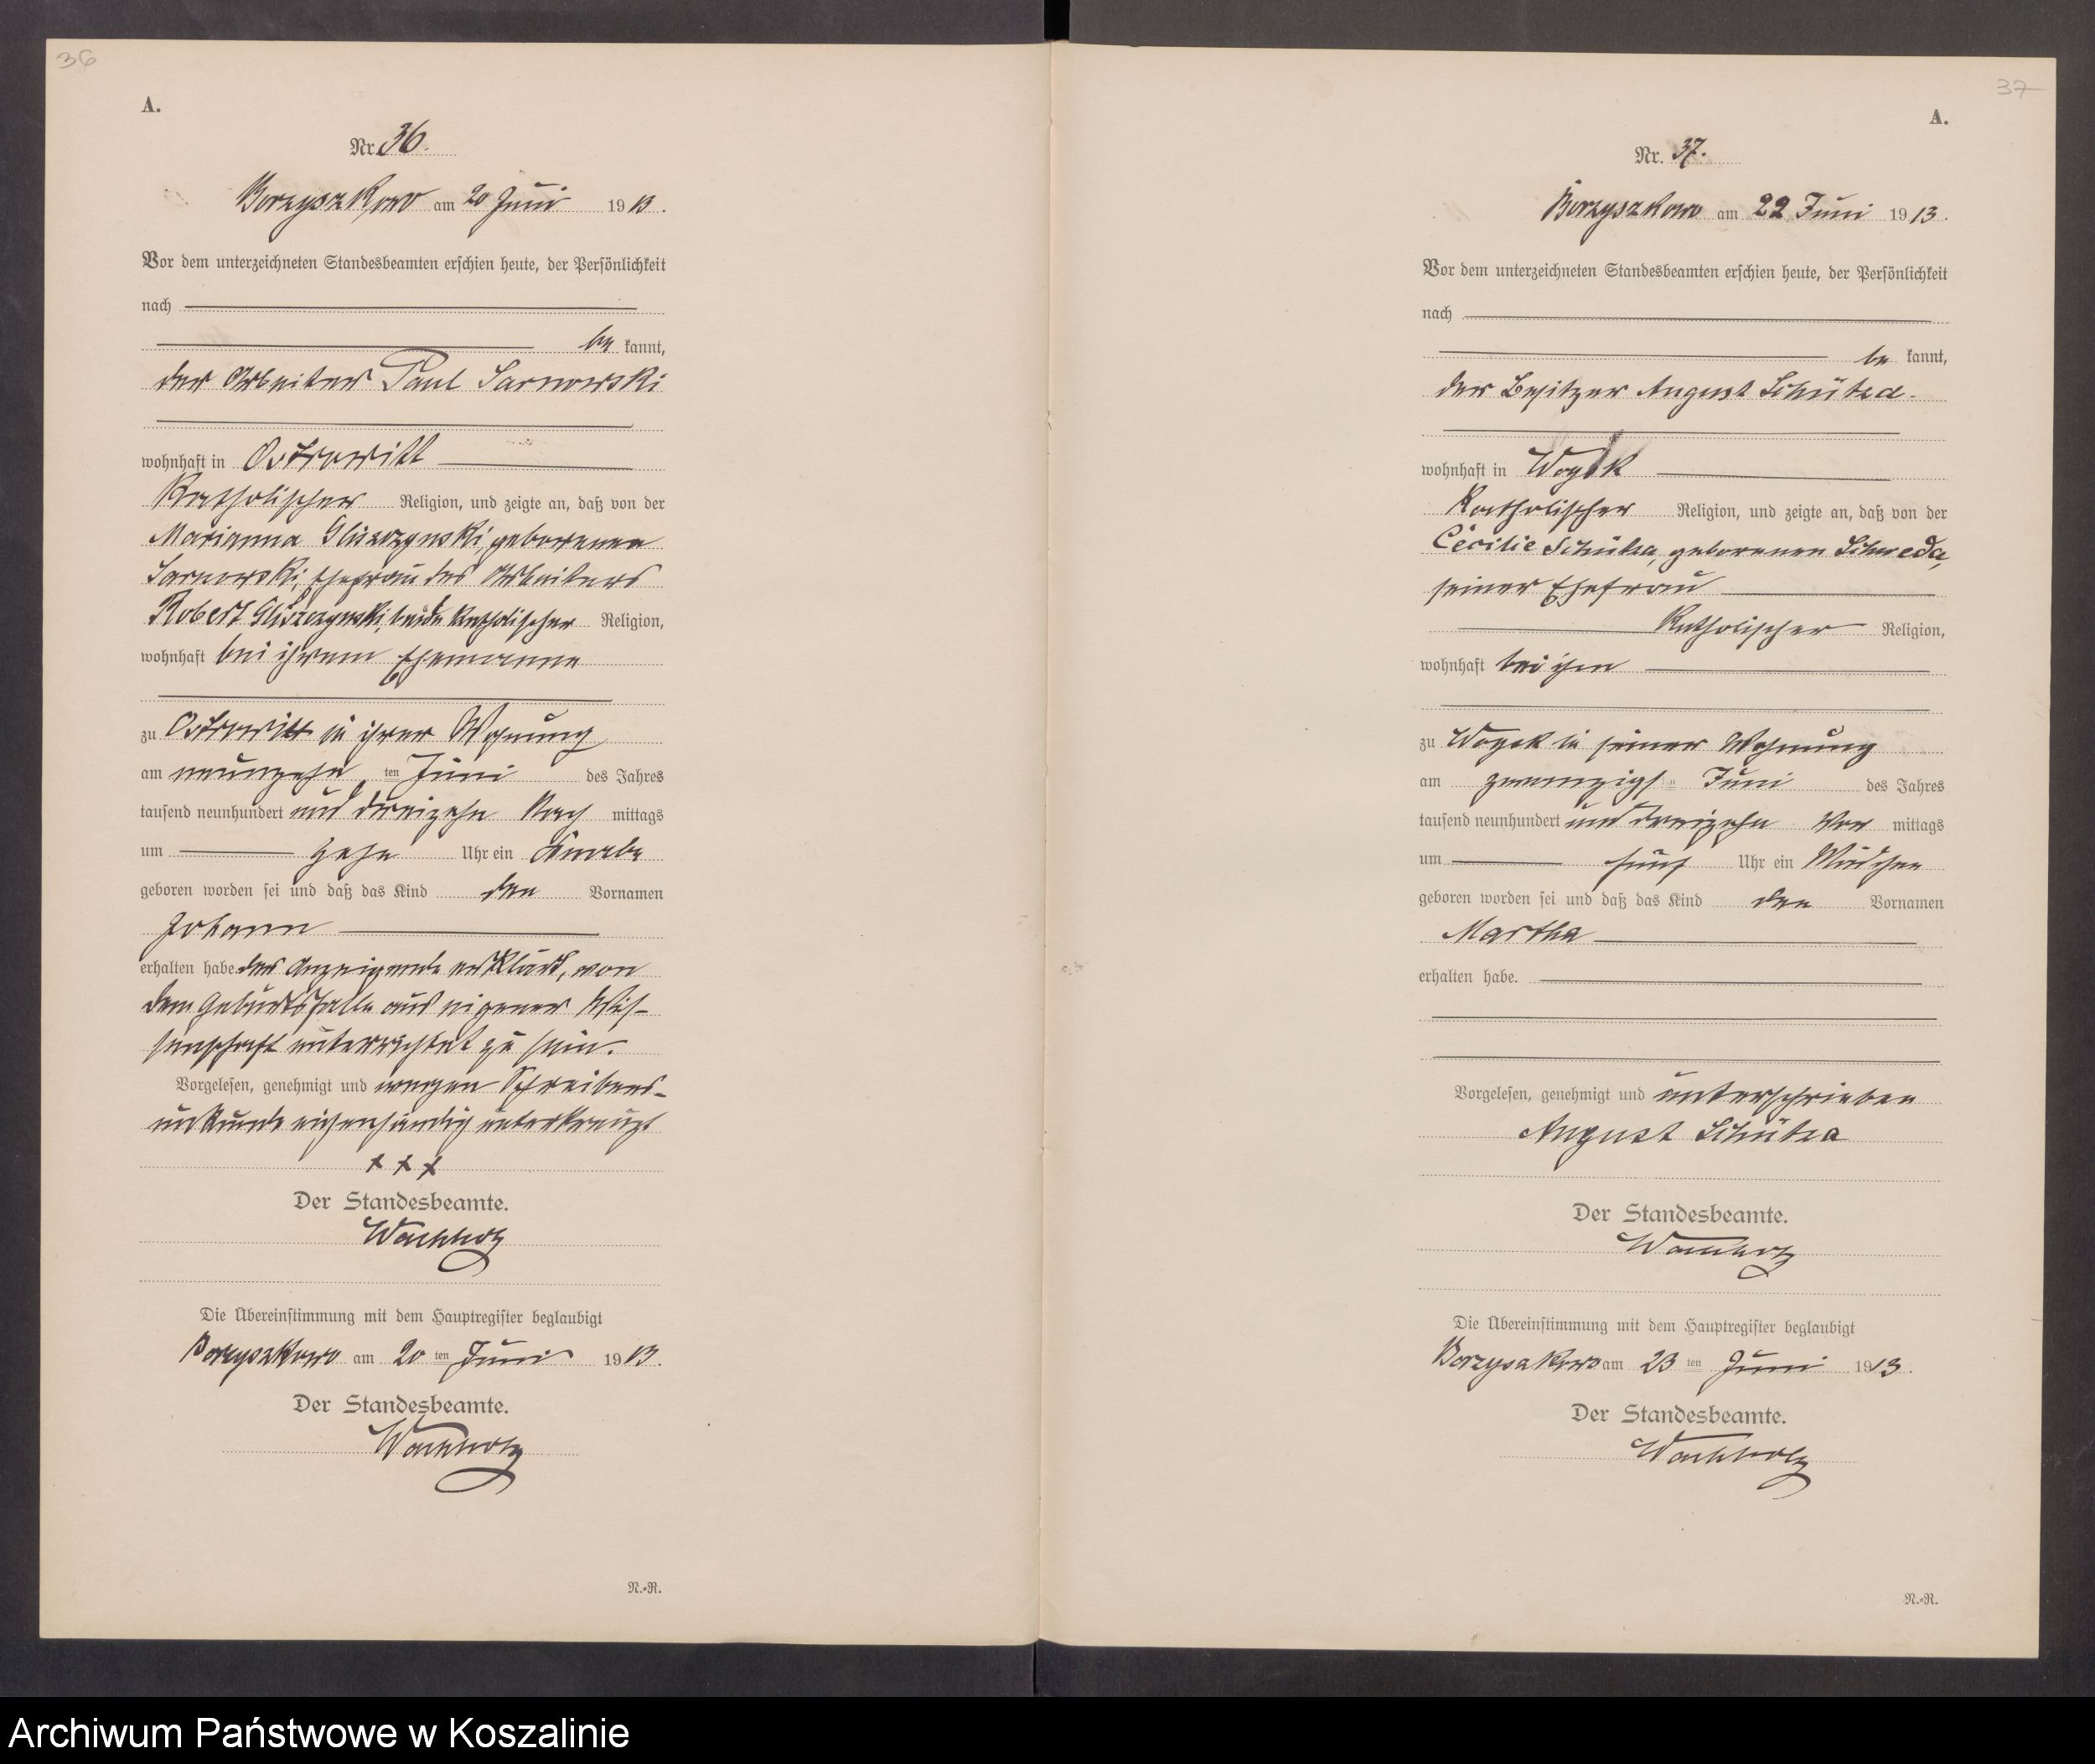 36
A.
Nr. 36.
Borzyszkowo am 20 Juni 1913.
Vor dem unterzeichneten Standesbeamten erschien heute, der Persönlichkeit
nach
be kannt,
der Arbeiter Paul Sarnowski
wohnhaft in Ostrowitt
Katholischer Religion, und zeigte an, daß von der
Marianna Gliszczynski, geborenen
Sarnowski, Ehefrau des Arbeiters
Robert Gliszczynski, beide katholischer Religion,
wohnhaft bei ihrem Ehemanne
zu Ostrowitt in ihrer Wohnung
am neunzehn ten Juni des Jahres
tausend neunhundert und dreizehn Nach mittags
um zehn Uhr ein Knabe
geboren worden sei und daß das Kind den Vornamen
Johann
erhalten habe. der Anzeigende erklärt, von
dem Geburtsfalle aus eigener Wis-
senschaft unterrichtet zu sein.
Vorgelesen, genehmigt und wegen Schreibens-
unkunde eigenhändig unterkreuzt
+ + +
Der Standesbeamte.
Wachholz
Die Übereinstimmung mit dem Hauptregister beglaubigt
Borzyszkowo am 20 ten Juni 1913.
Der Standesbeamte.
Wachholz
N.-R.
37
A.
Nr. 37.
Borzyszkowo am 22 Juni 1913.
Vor dem unterzeichneten Standesbeamten erschien heute, der Persönlichkeit
nach
be kannt,
der Besitzer August Schütza
wohnhaft in Woysk
Katholischer Religion, und zeigte an, daß von der
Cecilie Schütza, geborenen Schweda,
seiner Ehefrau
Katholischer Religion,
wohnhaft bei ihm
zu Woysk in seiner Wohnung
am zwanzigs ten Juni des Jahres
tausend neunhundert und dreizehn Vor mittags
um fünf Uhr ein Mädchen
geboren worden sei und daß das Kind den Vornamen
Martha
erhalten habe.
Vorgelesen, genehmigt und unterschrieben
August Schütza
Der Standesbeamte.
Wachholz
Die Übereinstimmung mit dem Hauptregister beglaubigt
Borzyszkowo am 23 ten Juni 1913.
Der Standesbeamte.
Wachholz
N.-R.
Archiwum Państwowe w Koszalinie